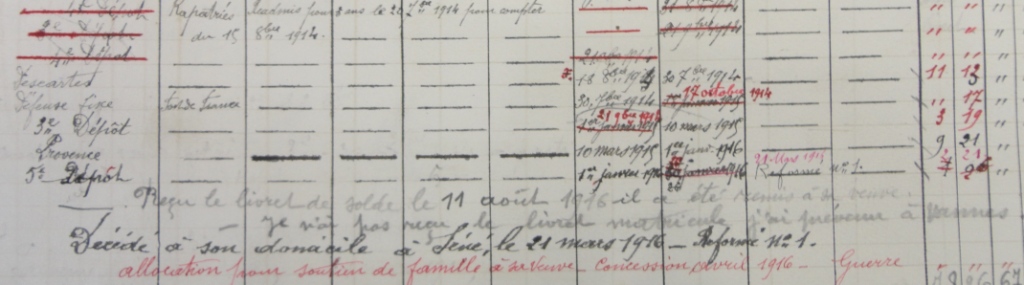 4e Dépôt Rapatriés Réadmis pour 3 ans le 26 7bre 1914 pour compter " " "
du 15 8bre 1914. " " "
4e Dépôt " " "
Descartes 18 8bre 1914 30 7bre 1914 11 13 "
Défense fixe 30 7bre 1914 17 octobre 1914 " 17 "
3e Dépôt 21 9bre 1914 10 mars 1915 3 19 "
Provence 10 mars 1915 1er janv. 1916 9 21 "
5e Dépôt 1er janvier 1916 21 Mars 1916 Réformé n° 1.
Reçu le livret de solde le 11 août 1916 il a été remis à sa veuve.
Je n'ai pas reçu le livret matricule j'ai prévenu à Vannes
Décédé à son domicile à Séné, le 21 mars 1916 – Réformé n° 1.
allocation pour soutien de famille à sa veuve – concession avril 1916 – Guerre